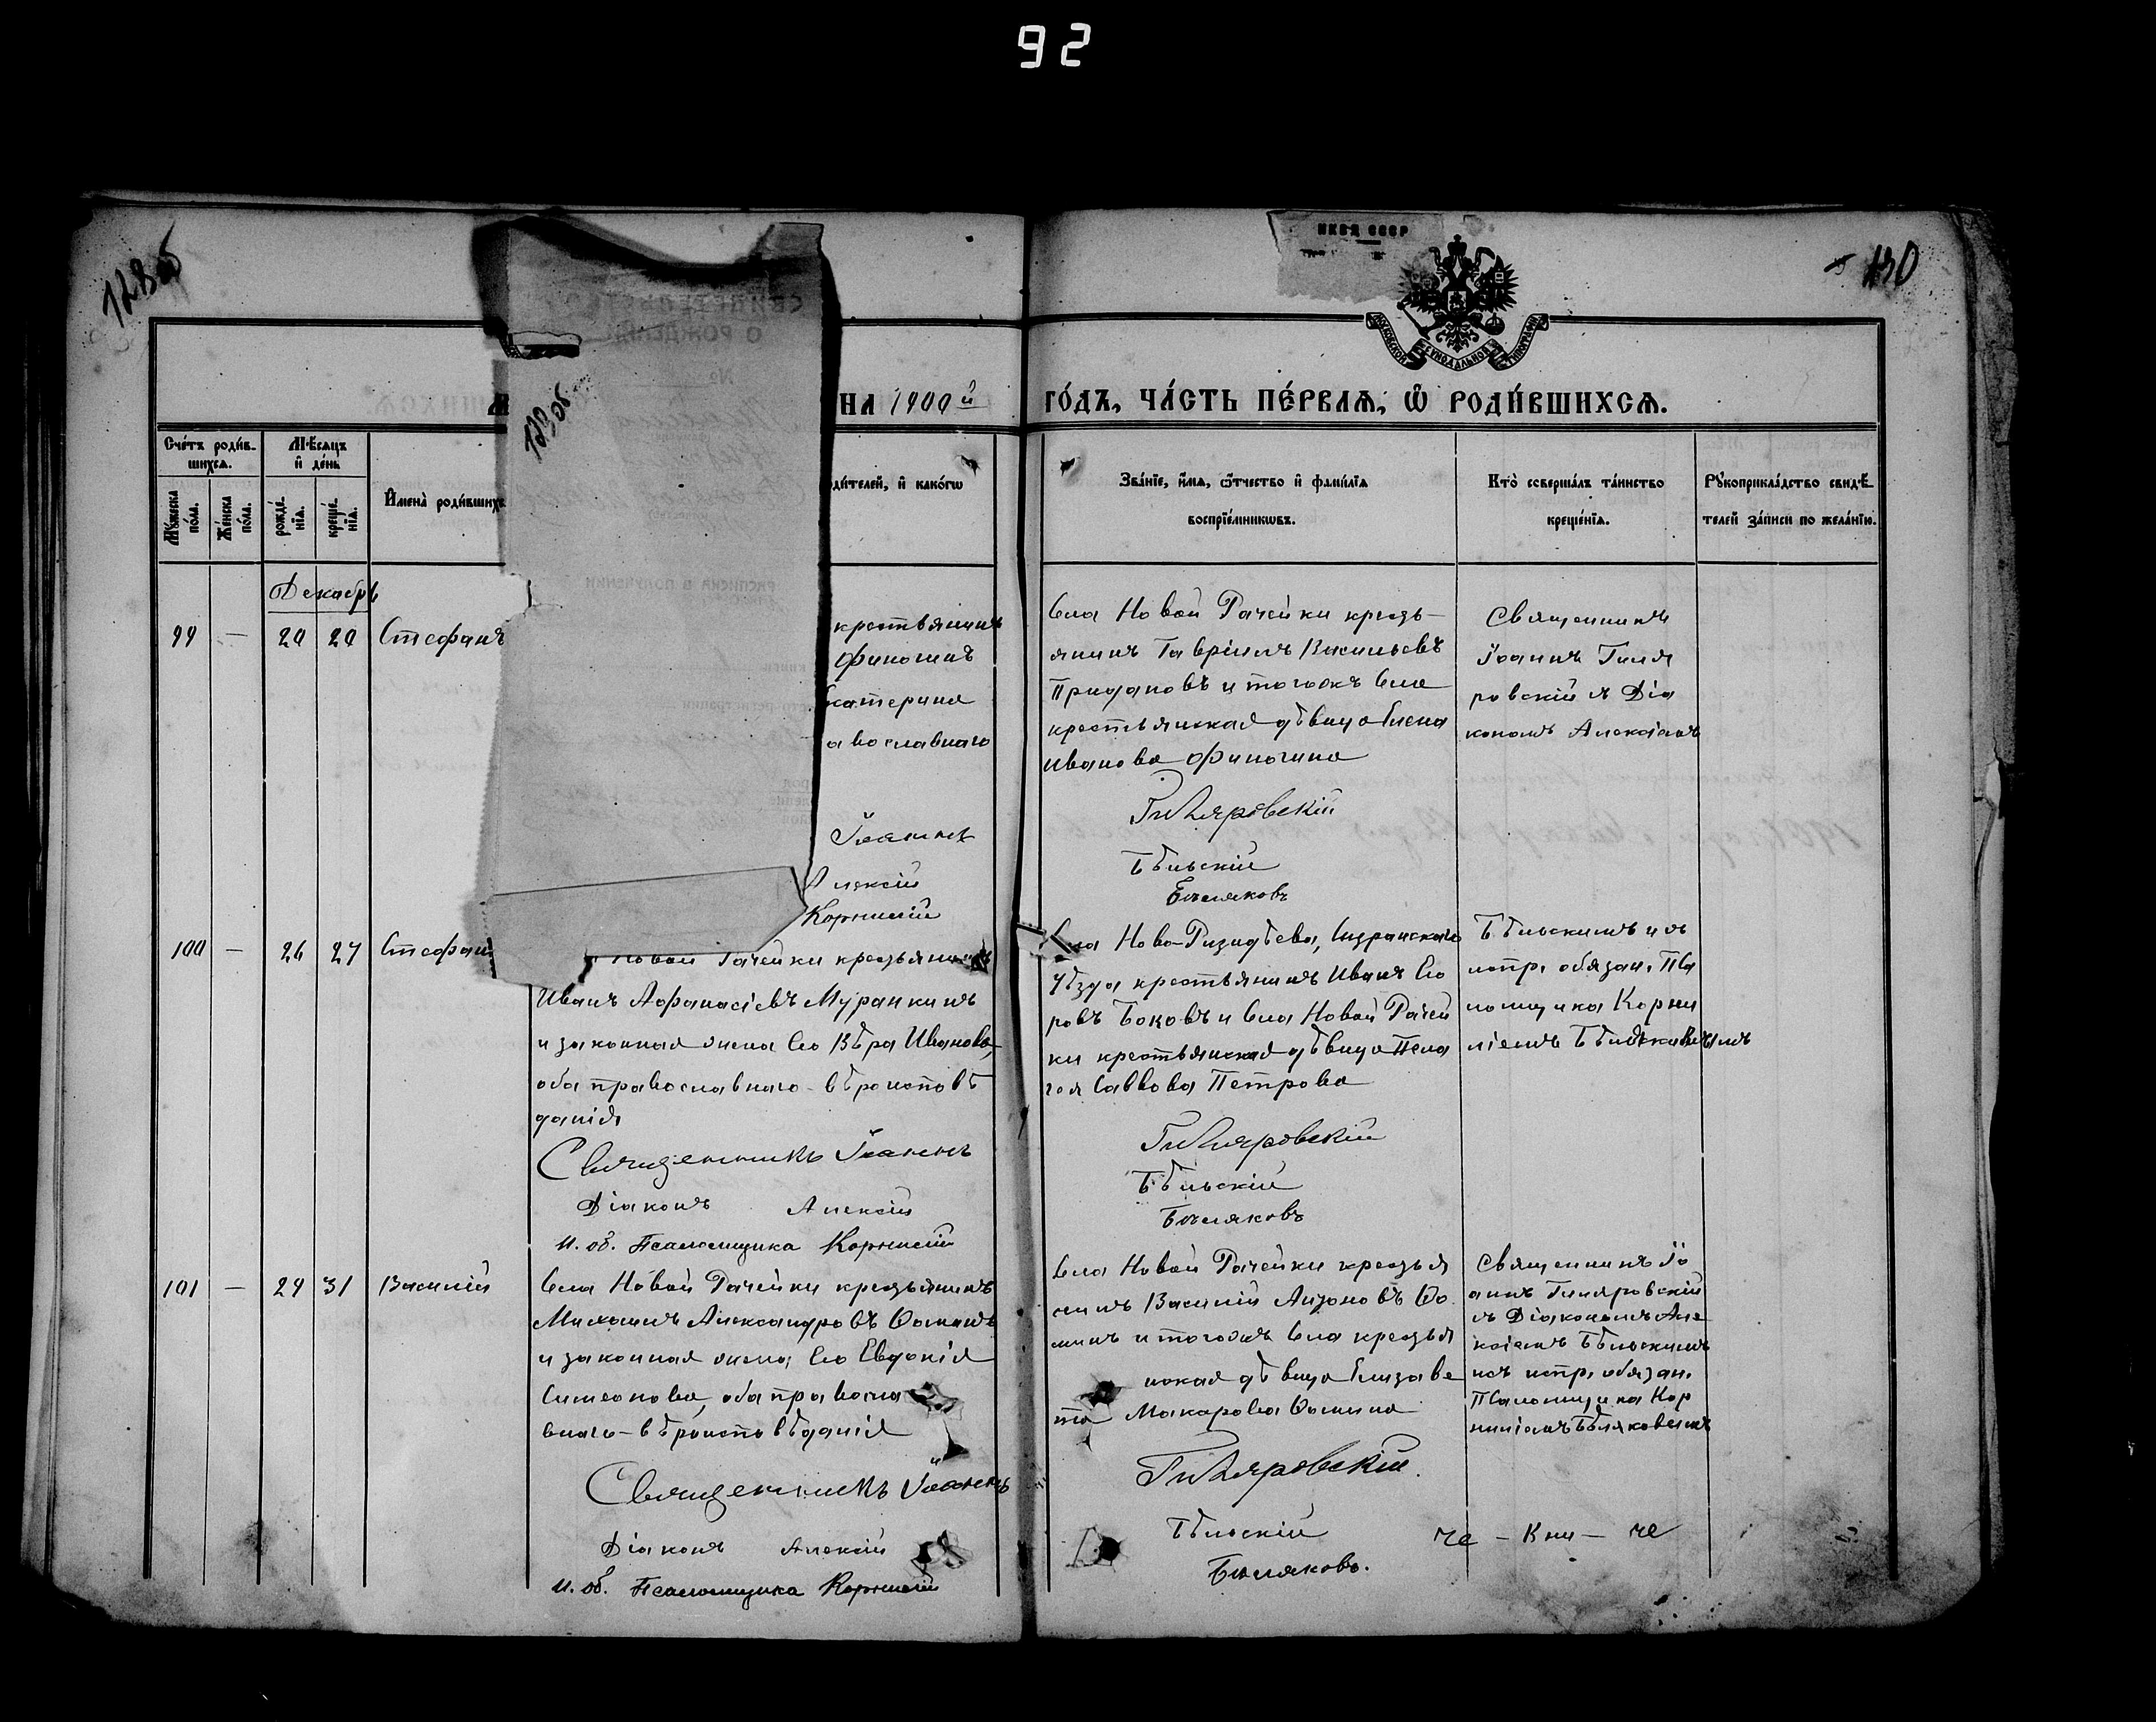 92
128 об
НКВД СССР
130
МОСКОВСКОЙ СѴНОДАЛЬНОЙ ТИПОГРАФІИ
СВИДЕТЕЛЬСТВО
О РОЖДЕНИИ
№
129 об
НА 1900й
ГО́ДЪ, ЧА́СТЬ ПЕ́РВАѦ, Ѡ҆ РОДИ́ВШИХСѦ.
Сче́тъ роди́в-
шихсѧ.
Мꙋ́жеска по́ла.
Же́нска по́ла.
Мѣ́сѧцъ
и҆ де́нь
рожде́-
нїѧ.
креще́-
нїѧ.
И҆мена̀ роди́вших
ди́телей, и҆ како́гѡ
Зва́нїе, и҆́мѧ, ѻ҆́тчество и҆ фами́лїѧ
воспрїе́мникѡвъ.
Кто̀ соверша́лъ та́инство
креще́нїѧ.
Рꙋкоприкла́дство свидѣ́-
телей за́писи по жела́нїю.
расписка в получении
Декабрь
99 — 20 20 Стефанъ
крестьянинъ
Финогинъ
катерина
авославнаго
Іоаннъ
Алексій
Корнилій
Села Новой Рачейки кресть-
янинъ Гавріилъ Васильевъ
и тогожъ села
крестьянская дѣвица Елена
Иванова Финогина
Гиляровскій
Бѣльскій
Бѣляковъ
Священникъ
Іоаннъ Гиля
ровскій съ Діа
кономъ Алексіемъ
100 — 26 27 Стефан
Новой Рачейки крестьянинъ
Иванъ Афанасіевъ Муранкинъ
и законная жена его Вѣра Иванова,
оба православнаго-вѣроисповѣ
данія
Священникъ Іоаннъ
Діаконъ Алексій
И. об. Псаломщика Корнилій
Села Ново-Ризадѣева, Сызранскаго
уѣзда крестьянинъ Иванъ Его
ровъ Боковъ и села Новой Рачей
ки крестьянская дѣвица Пела
гея Саввова Петрова
Гиляровскій
Бѣльскій
Бѣляковъ
Бѣльскимъ и съ
испр. обязан. Пса
ломщика Корни
ліемъ
101 — 29 31 Василій
Села Новой Рачейки крестьянинъ
Михаилъ Александровъ Ѳоминъ
и законная жена его Евдокія
Симеонова, оба правосла
внаго-вѣроисповѣданія
Священникъ Іоаннъ
Діаконъ Алексій
И. об. Псаломщика Корнилій
Села Новой Рачейки крестья
нинъ Василій Антоновъ Ѳо
минъ и тогожъ села крестья
нская дѣвица Елизаве
та Макарова Ѳомина
Гиляровскій
Бѣльскій
Бѣляковъ.
Священникъ Іо
аннъ Гиляровскій
съ Діакономъ Але
ксіемъ Бѣльскимъ
и съ испр. обязан.
Псаломщика Кор
ниліемъ Бѣляковымъ
че — Кни — че